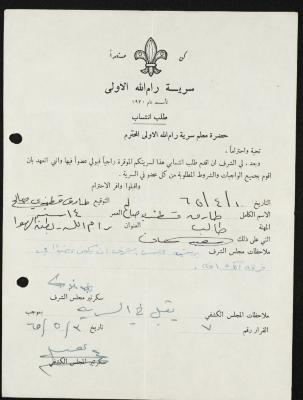 كن مستعداً
سرية رام الله الاولى
تأسست عام ١٩٢٠
طلب انتساب
حضرة معلم سرية رام الله الاولى المحترم
تحية واحتراماً ،
وبعد ، لي الشرف ان اقدم طلب انتسابي هذا لسريتكم الموقرة راجياً قبولي عضواً فيها وانني اتعهد بان
اقوم بجميع الواجبات والشروط المطلوبة من كل عضو في السرية .
واقبلوا وافر الاحترام
التاريخ ١٠ / ٤ / ٦٥ التوقيع طارق قسطندي صالح
الاسم الكامل طارق قسطندي صالح العمر ١٤ سنة
المهنة طالب العنوان رام الله
اثنى على ذلك
ملاحظات مجلس الشرف
سكرتير مجلس الشرف
ملاحظات المجلس الكشفي يقبل في السرية بموجب
القرار رقم ٧ تاريخ ٣ / ٥ / ٦٥
سكرتير المجلس الكشفي